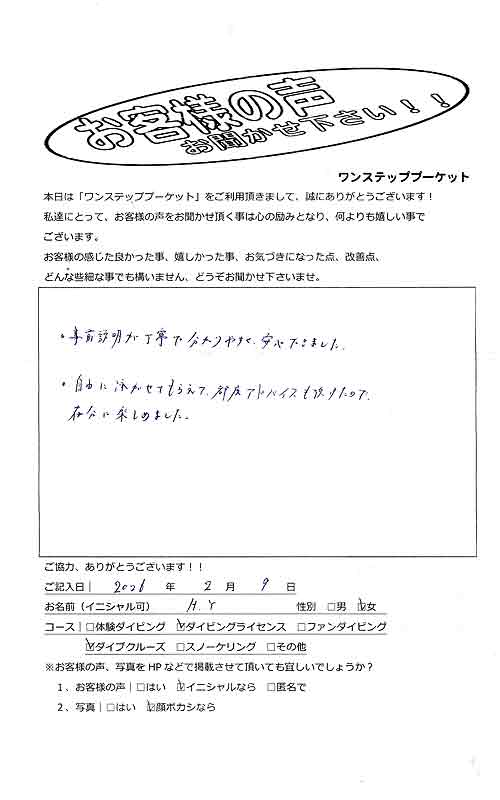 お客様の声
お聞かせ下さい！！
ワンステッププーケット
本日は「ワンステッププーケット」をご利用頂きまして、誠にありがとうございます！
私達にとって、お客様の声をお聞かせ頂く事は心の励みとなり、何よりも嬉しい事で
ございます。
お客様の感じた良かった事、嬉しかった事、お気づきになった点、改善点、
どんな些細な事でも構いません、どうぞお聞かせ下さいませ。
・事前説明が丁寧で分かりやすく、安心できました。
・自由に泳がせてもらえて、都度アドバイスも頂けたので、
存分に楽しめました。
ご協力、ありがとうございます！！
ご記入日｜ 2026 年 2 月 9 日
お名前（イニシャル可） H.Y 性別 □男 ☑女
コース｜□体験ダイビング ☑ダイビングライセンス □ファンダイビング
☑ダイブクルーズ □スノーケリング □その他
※お客様の声、写真を HP などで掲載させて頂いても宜しいでしょうか？
１、お客様の声｜□はい ☑イニシャルなら □匿名で
２、写真｜□はい ☑顔ボカシなら